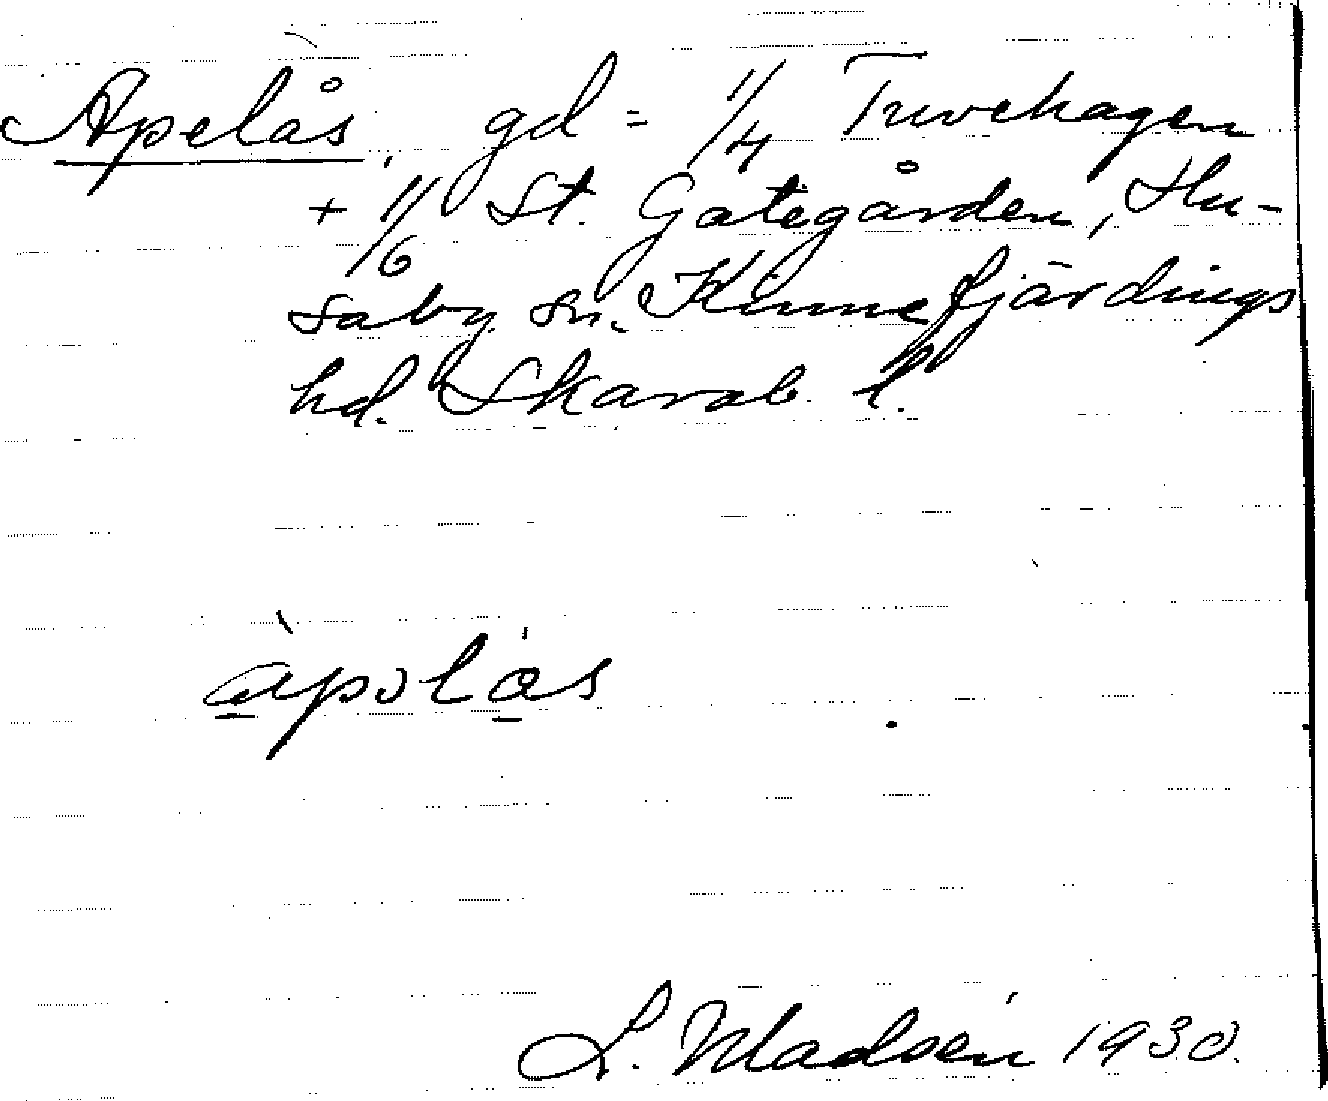 Apelås, gd = 1/4 Truvehagen
+ 1/6 St. Gategården, Hu-
saby sn. Kinnefjärdings
hd. Skarab. l.
àpolás
L. Madsén 1930.